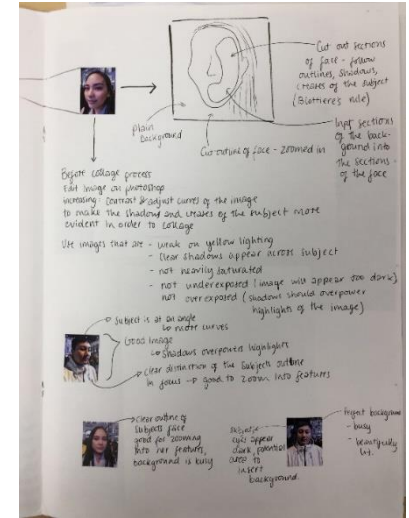 Cut out sections
of face - follow
outlines, shadows,
creates of the subject
Plain
background
Cut outline of face - zoomed in
Input sections
of the back-
ground into
the sections
of the face
Before collage process
Edit image on photoshop
increasing contrast & adjust curves of the image
to make the shadows and creates of the subject more
evident in order to collage
Use images that are - weak on yellow lighting
- clear shadows appear across subject
- not heavily saturated
- not underexposed (image will appear too dark)
not overexposed (shadows should overpower
highlights of the image)
Subject is at an angle
↳ more curves
Good image
↳ shadows overpower highlights
Clear distinction of the subjects outline
In focus → good to zoom into features
Clear outline of
subjects face
good for zooming
into her features,
background is busy
Subjects
eyes appear
dark, potential
area to
insert
background.
background
- busy
- beautifully
lit.